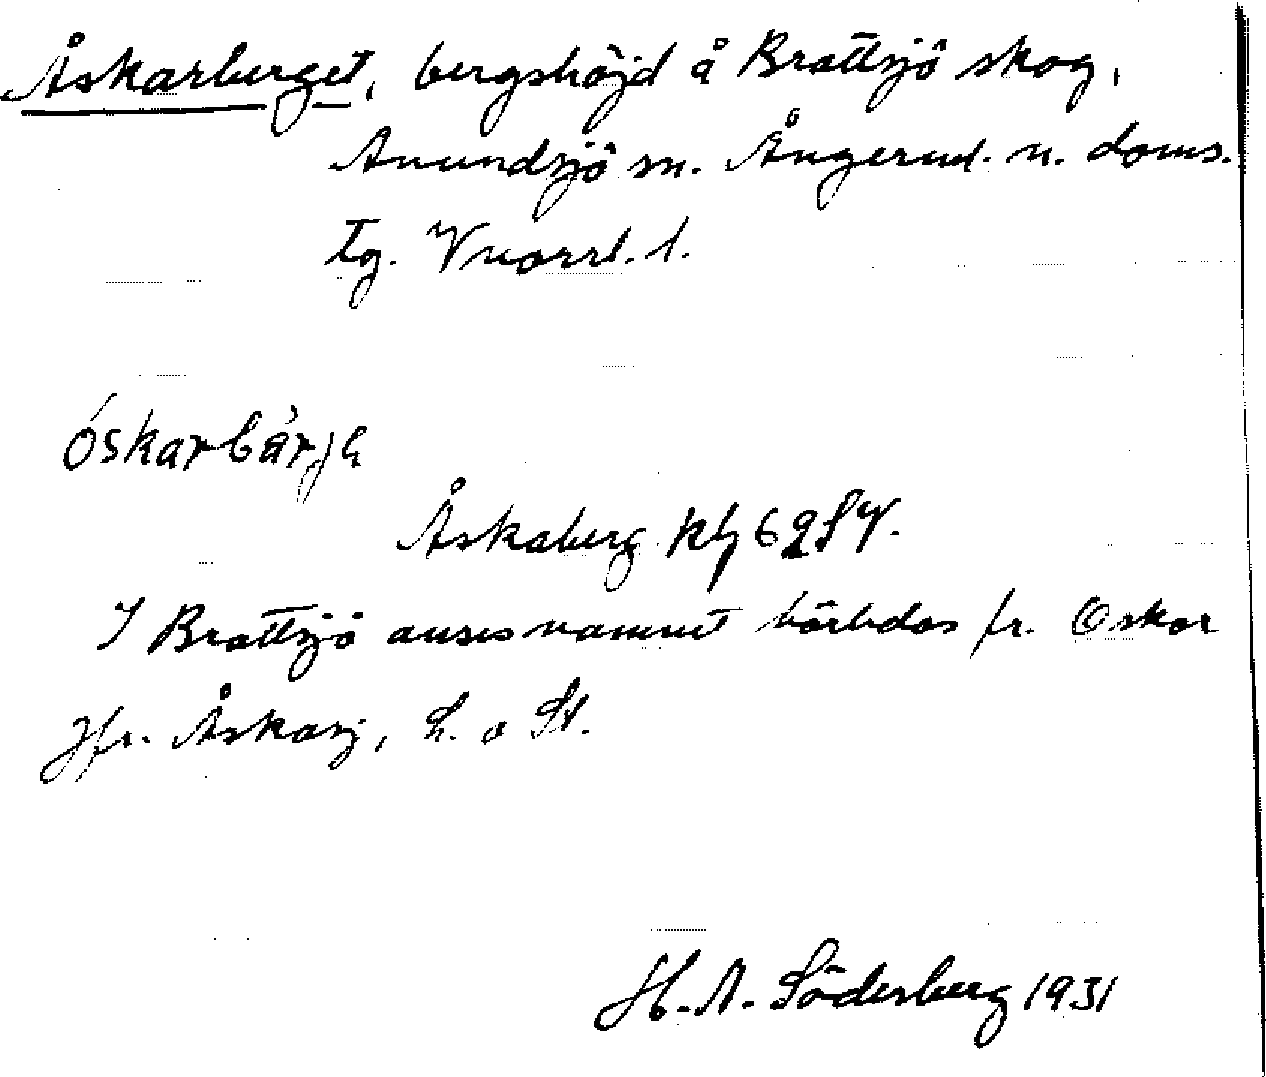 Åskarberget, bergshöjd å Brattsjö skog,
Anundsjö sn. Ångerml. n. doms.
tg. Vnorrl. l.
óskarbàrje
Åskaberg kbl 62 SV.
I Brattsjö anses namnet härledas fr. Oskar
Jfr. Åskasj, L. o St.
H. A. Söderberg 1931